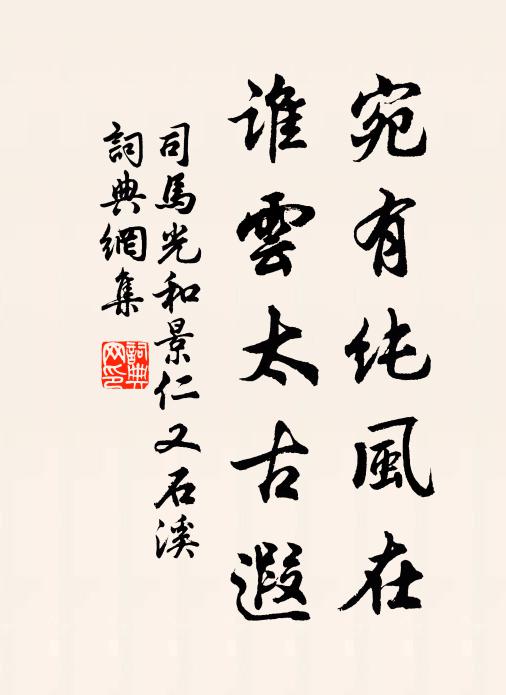 宛有纯風在
谁雲太古遐
司馬光和景仁又石溪
詞典網集
詞典網印